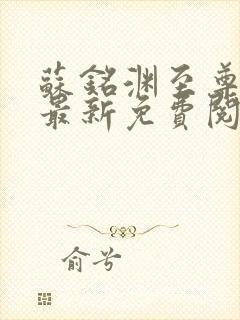 蘇銘渊至尊
最新免費閱
俞兮